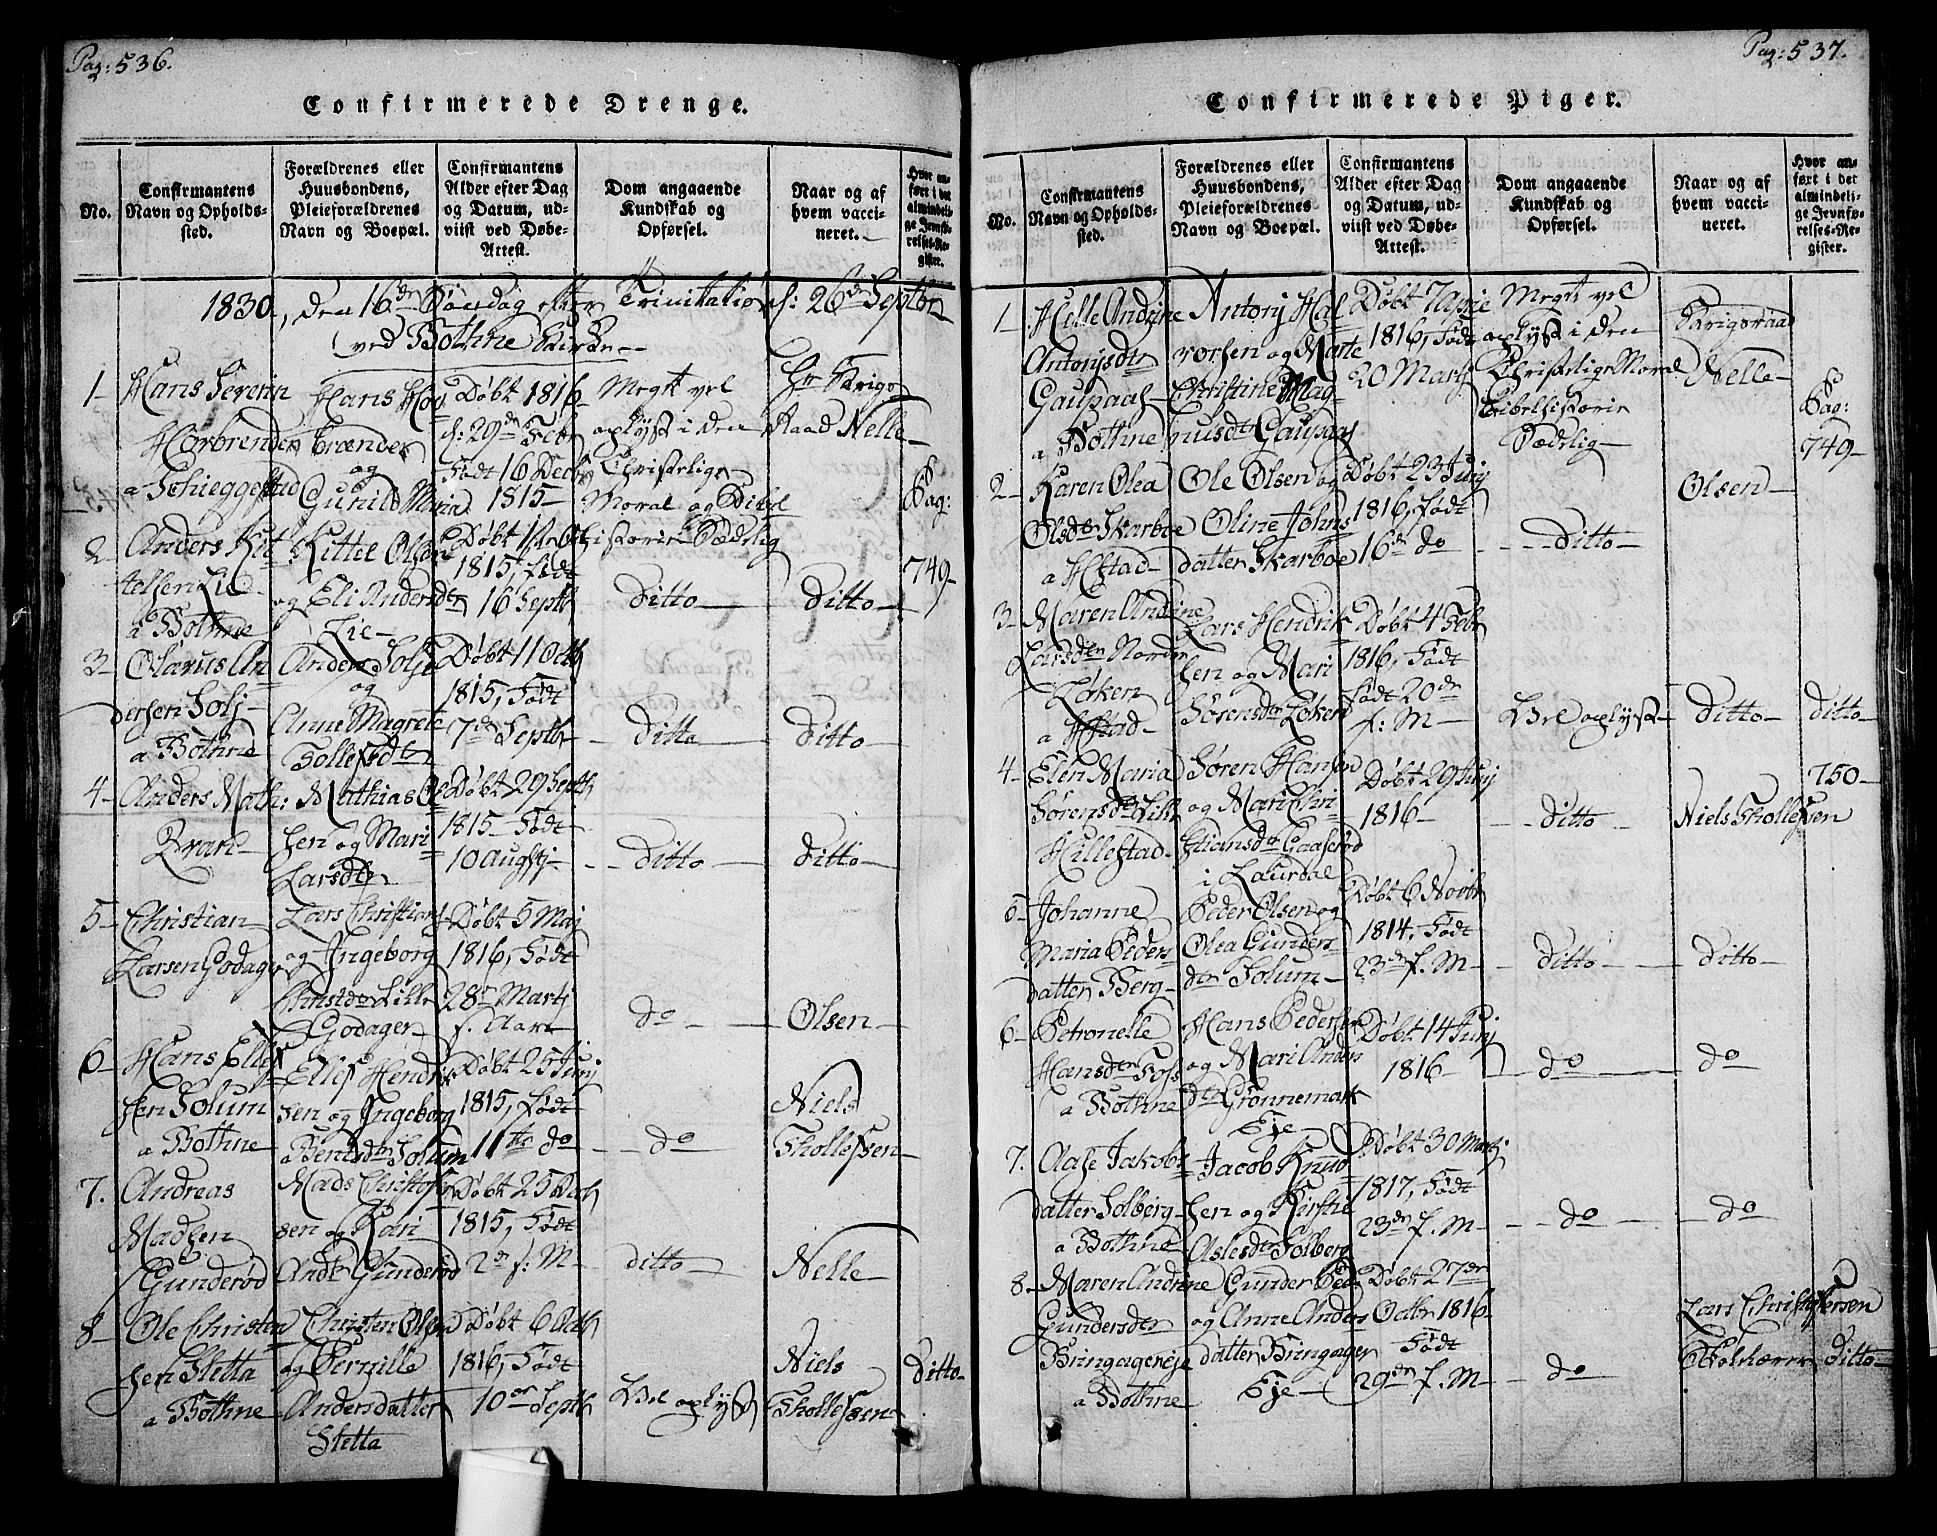 Pag: 536.
Confirmerede Drenge.
No.
Confirmantens Navn og Opholdssted.
Forældrenes eller Huusbondens, Pleieforældrenes Navn og Boepæl.
Confirmantens Alder efter Dag og Datum, udviist ved Døbe-Attest.
Dom angaaende Kundskab og Opførsel.
Naar og af hvem vaccineret.
Hvor anført i det almindelige Jevnførelses-Register.
1830, den 16de Søndag efter Trinitatis, d: 26de Septbr
ved Bothne Kirke
1 Hans Severin
Horbrenden
a
Hans Hor
brænden
og
Gunild Maria
Døbt 1816
d: 29de Febr
Født 16 Decbr
1815
Meget vel
oplyst i den
Christelige
Moral og Bibel
historie Sædelig
Hr Krigs
Raad Nelle
Pag:
749
2 Anders Kit
telsen Lie
a Bothne
Kittel Olsen
og Eli Andersdtr
Lie
Døbt 1ste Octb
1815, født
16 Septb
Ditto
Ditto
3 Olavus An
dersen Solj
a Bothne
Anders Solje
og
Anne Magrete
Tollefsdtr
Døbt 11 Octb
1815, Født
7de Septbr
Ditto
Ditto
4 Anders Math:
Mathias Ol
sen og Mari
Larsdtr
Døbt 29 Septb
1815 Født
10 Augstj
Ditto
Ditto
5 Christian
Larsen Godager
Lars Christians
og Ingeborg
Lille
Godager
Døbt 5 Maj
1816, Født
28de Martj
s. Aar
do
Olsen
6 Hans Ellef
sen Solum
a Bothne
Ellef Hendrik
sen og Ingeborg
Bentsdtr Solum
Døbt 25 Junj
1815, født
11te do
do
Niels
Thollefsen
7. Andreas
Madsen
Gunderød
Mads Christof
sen og Kari
Andr Gunderød
Døbt 25 Octb
1815, Født
2de s: M
ditto
Nelle
8 Ole Christen
sen Sletta
a Bothne
Christen Olsen
og Pernille
Andersdatter
Sletta
Døbt 6 Octb
1816, Født
10de Septb
Vel oplyst
Niels
Thollefsen
Ditto
Pag: 537.
Confirmerede Piger.
No.
Confirmantens Navn og Opholdssted.
Forældrenes eller Huusbondens, Pleieforældrenes Navn og Boepæl.
Confirmantens Alder efter Dag og Datum, udviist ved Døbe-Attest.
Dom angaaende Kundskab og Opførsel.
Naar og af hvem vaccineret.
Hvor anført i det almindelige Jevnførelses-Register.
1 Helle Andrine
Antonjsdtr
Gaupaas
a Bothne
Antonj Hal
vorsen og Marte
Christine Mag
nusdtr Gaupaas
Døbt 7 Aprie
1816, Født
20 Martj
Meget vel
oplyst i den
Christelige Moral
Bibelhistorie
Sædelig
Krigsraad
Nelle
Pag:
749
2 Karen Olea
Olsdtr Skarboe
a Hofstad
Ole Olsen og
Oline Johns
datter Skarboe
Døbt 23 Junj
1816, født
16de do
ditto
Olsen
3 Maren Andrine
Larsdtr Nordre
Løken
a Hofstad
Lars Hendrik
sen og Mari
Sørensdtr Løken
Døbt 4 Febr
1816, Født
født 20de
f. M
Vel oplyst
Ditto
Ditto
4 Elen Maria
Sørensdtr Lille
Hillestad
Søren Hansen
og Mari Chri
stiansdtr Gaaserød
i Laurdal
Døbt 29 Junj
1816
ditto
Niels Thollefsen
750
5 Johanne
Maria Peders
datter Berg
Peder Olsen og
Olea Gunders
dtr Solum
Døbt 6 Novbr
1814, Født
23de f. M
Ditto
Ditto
6 Petronelle
Hansdtr Foss
a Bothne
Hans Pedersen
og Mari Anders
dtr Grønnemark
Eje
Døbt 14 Junj
1816
do
do
7. Aase Jakobs
datter Solberg
a Bothne
Jacob Knud
sen og Kirstne
Aslesdtr Solberg
Døbt 30 Martj
1817, Født
23de f. M
do
do
8 Maren Andrine
Gundersdtr
Bringagereje
a Bothne
Gunder Ped
og Anne Anders
datter Bringager
Eje
Døbt 27de
Octbr 1816
Født
29de f. M
do
Lars Christofersen
Ditto